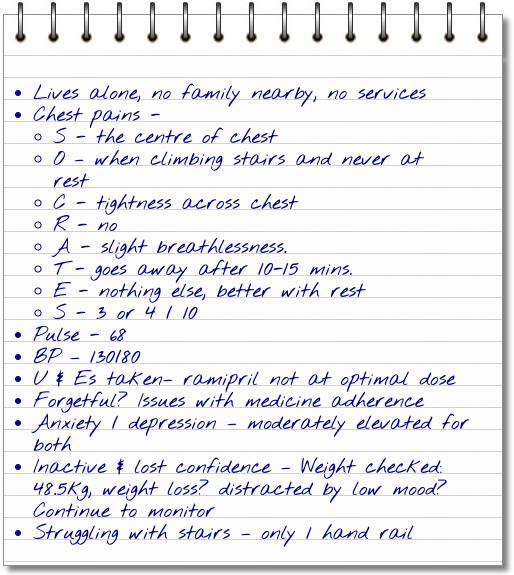 • Lives alone, no family nearby, no services
• Chest pains -
○ S - the centre of chest
○ O - when climbing stairs and never at
rest
○ C - tightness across chest
○ R - no
○ A - slight breathlessness.
○ T - goes away after 10-15 mins.
○ E - nothing else, better with rest
○ S - 3 or 4 / 10
• Pulse - 68
• BP - 130/80
• U & Es taken- ramipril not at optimal dose
• Forgetful? Issues with medicine adherence
• Anxiety / depression - moderately elevated for
both
• Inactive & lost confidence - Weight checked:
48.5Kg, weight loss? distracted by low mood?
Continue to monitor
• Struggling with stairs - only 1 hand rail